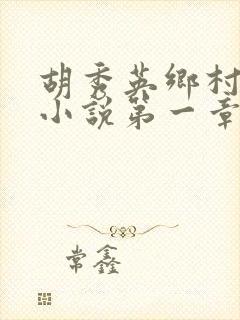 胡秀英鄉村
小說第一章
常鑫